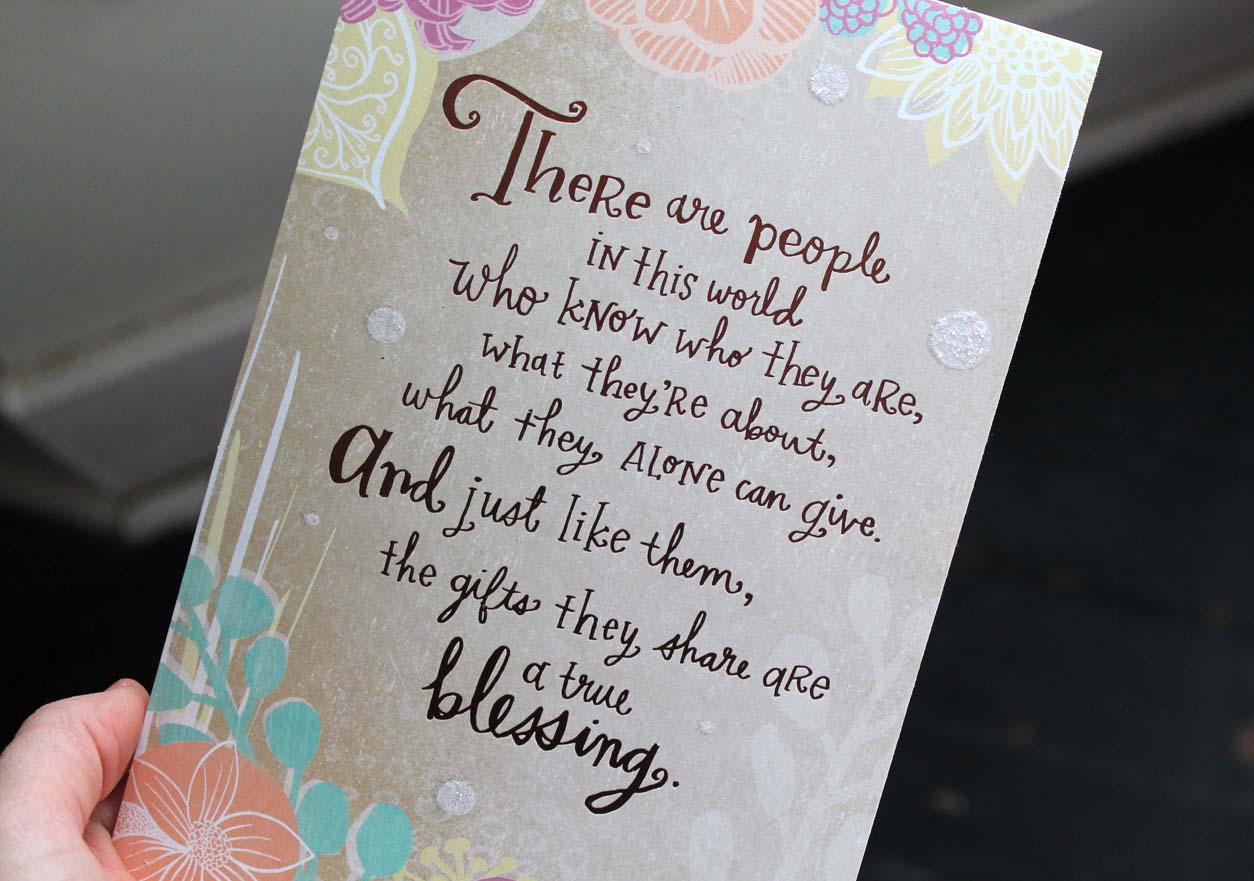 There are people
in this world
who know who they are,
what they're about,
what they alone can give.
And just like them,
the gifts they share are
a true
blessing.